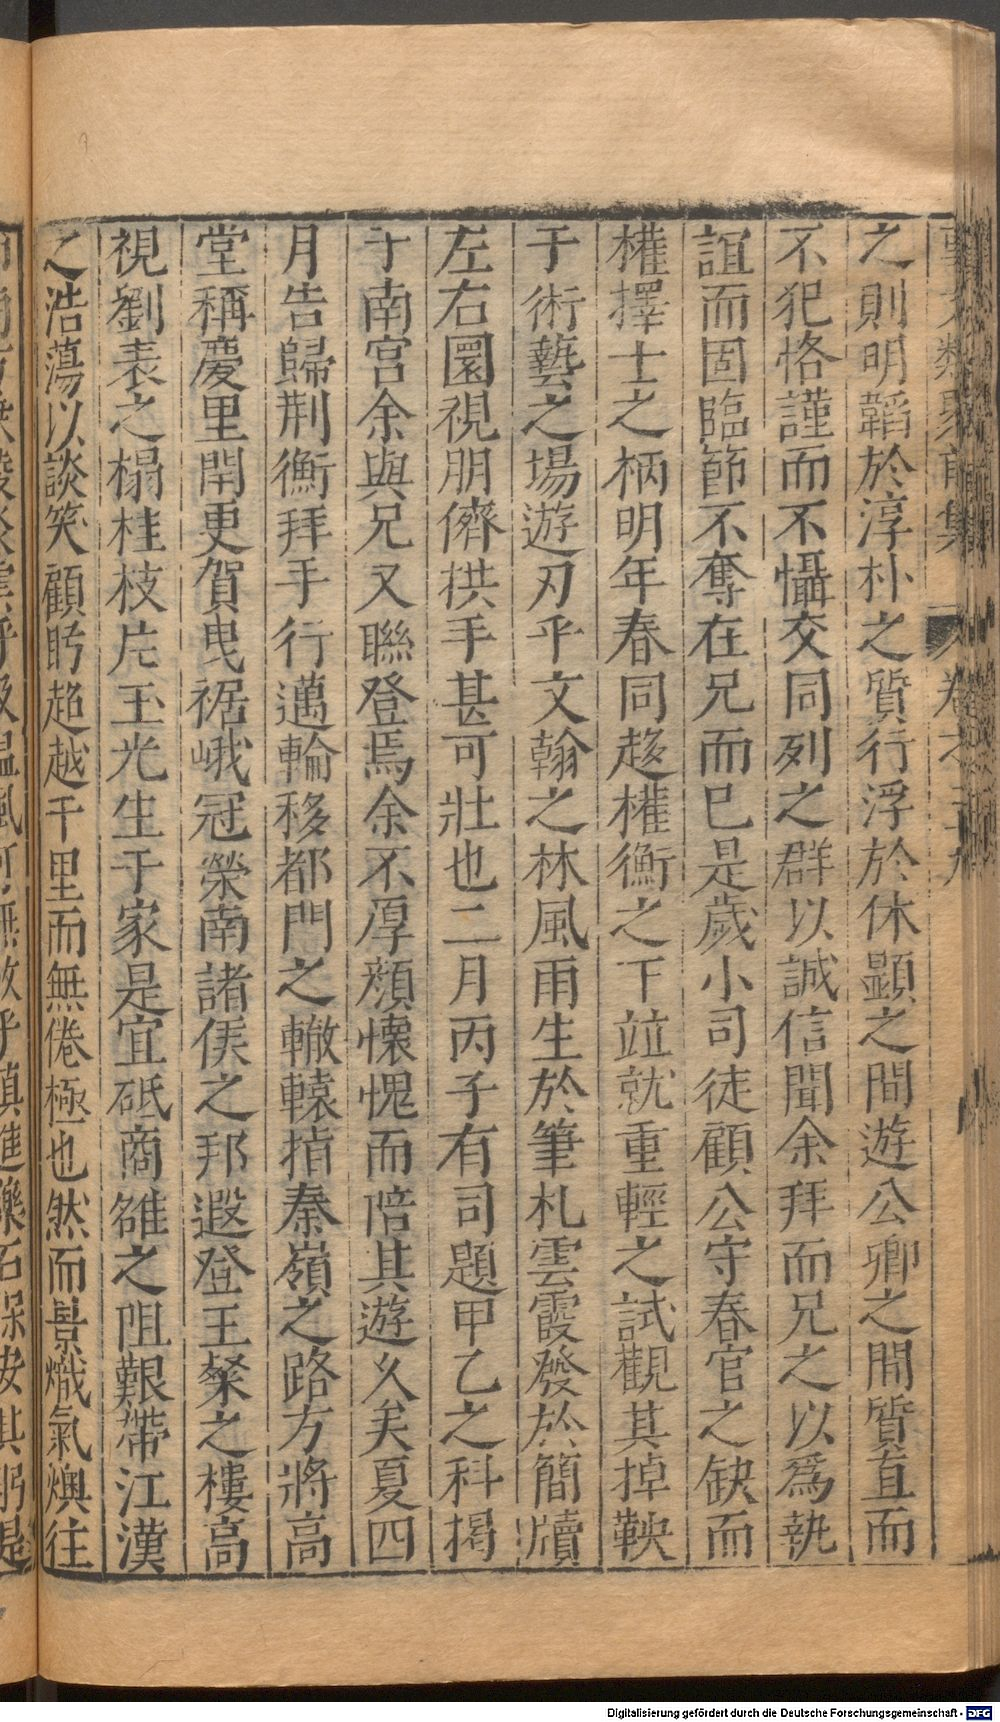 事文類聚前集 卷之二十九
之則明韜於淳朴之質行浮於休顯之間遊公卿之間質直而
不犯恪謹而不懾交同列之群以誠信聞余拜而兄之以爲執
誼而固臨節不奪在兄而已是歲小司徒顧公守春官之缺而
權擇士之柄明年春同趍權衡之下竝就重輕之試觀其掉鞅
于術藝之場遊刃乎文翰之林風雨生於筆札雲霞發於簡牘
左右圜視朋儕拱手甚可壯也二月丙子有司題甲乙之科揭
于南宮余與兄又聯登焉余不厚顏懷愧而陪其遊久矣夏四
月告歸荆衡拜手行邁輪移都門之轍轅指秦嶺之路方將高
堂稱慶里閈更賀曳裾峨冠榮南諸侯之邦遐登王粲之樓高
視劉表之榻桂枝片玉光生于家是宜砥商雒之阻艱帶江漢
之浩蕩以談笑顧眄超越千里而無倦極也然而景熾氣燠往